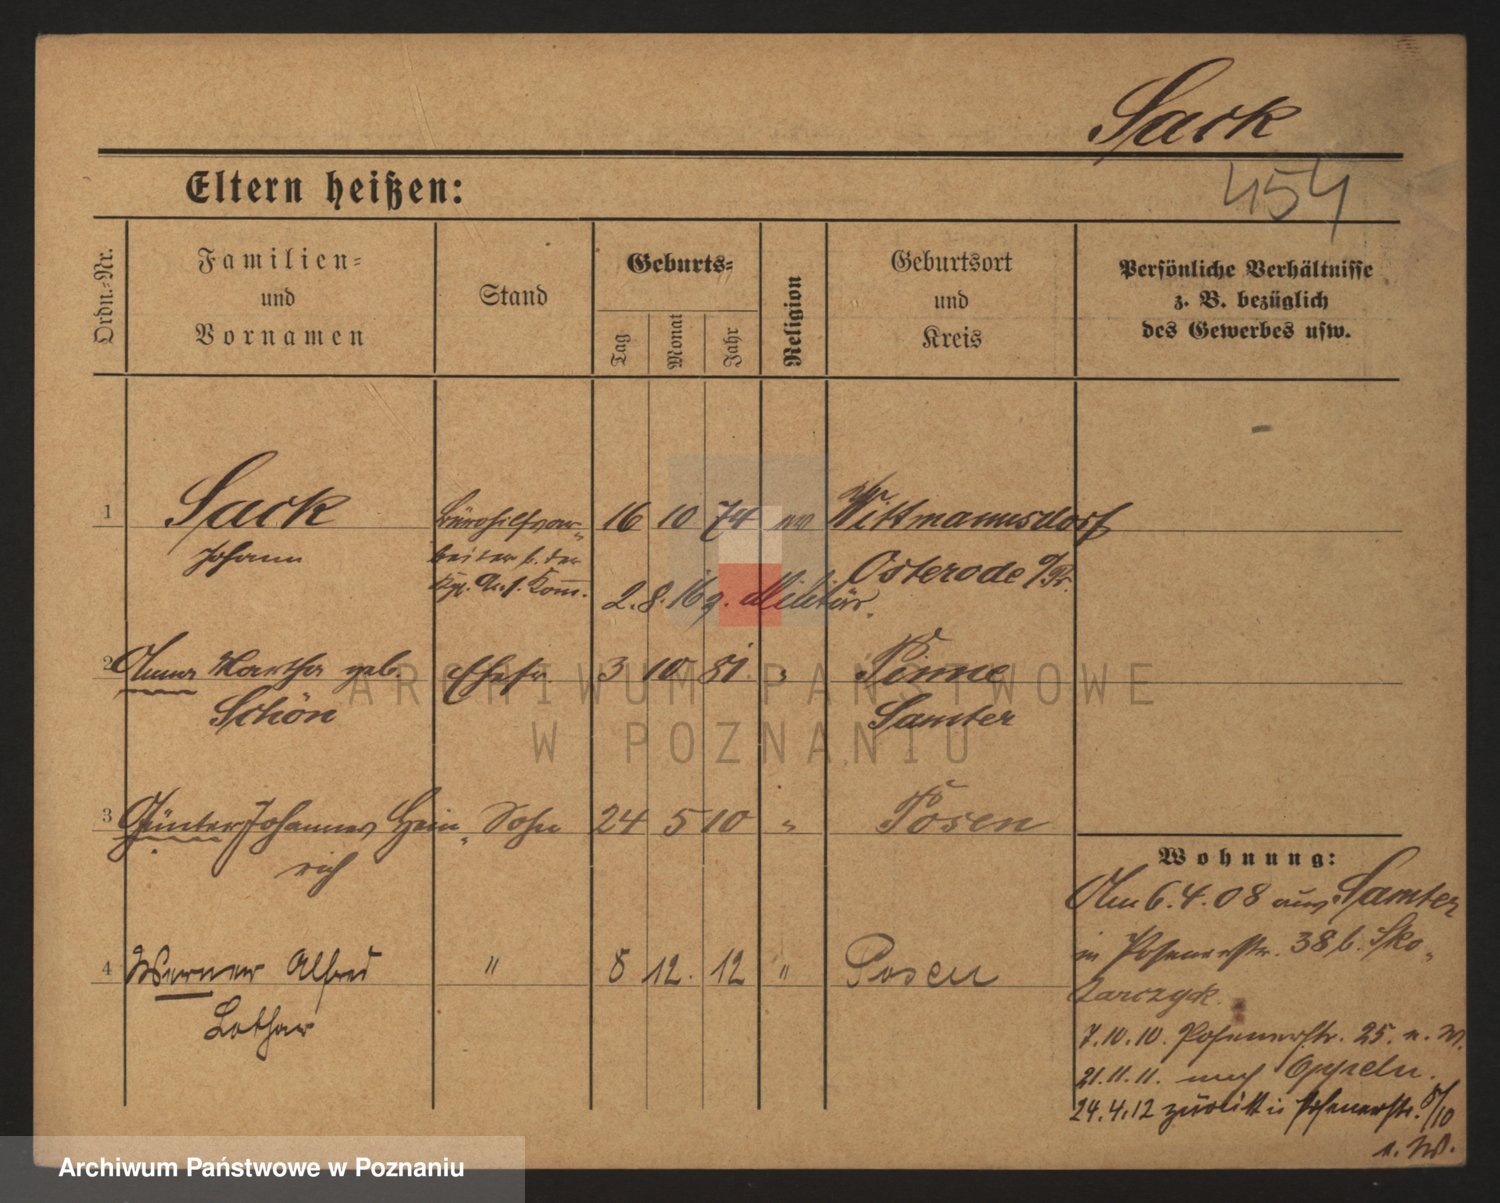 Sack
454
Eltern heißen:
Ordn.-Nr.
Familien- und Vornamen
Stand
Geburts-
Tag
Monat
Jahr
Religion
Geburtsort und Kreis
Persönliche Verhältnisse z. B. bezüglich des Gewerbes usw.
1 Sack 16 10 74 ev Wittmannsdorf
Johann Bürohilfsar-
beiter b. der
Kgl. Komm. Osterode O/Pr.
2. 8. 16 g. Militär.
2 Anna Martha geb. Ehefr. 3 10 81 " Pinne
Schön Samter
3 Günter Johannes Hein- Sohn 24 5 10 " Posen
rich
Wohnung:
Am 6.4.08 aus Samter
in Posenerstr. 38 b. Sko-
tarczyk.
4 Werner Alfred " 8 12. 12 " Posen
Lothar
7.10.10. Posenerstr. 25. n. W.
21.11.11. nach Oppeln.
24.4.12 zurück in Posenerstr. 5/10
n. W.
ARCHIWUM PAŃSTWOWE
W POZNANIU
Archiwum Państwowe w Poznaniu